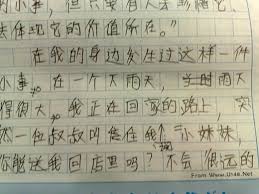 的小事，但只要有人来
去体现它的价值所在。”
在我的身边发生过这样一件
小事。在一个大雨天，当时雨天
得很大，我正在回家的路上，突
然一位叔叔叫住我，“小妹妹，
你能送我回店里吗？不会很远的
From Www.U148.Net